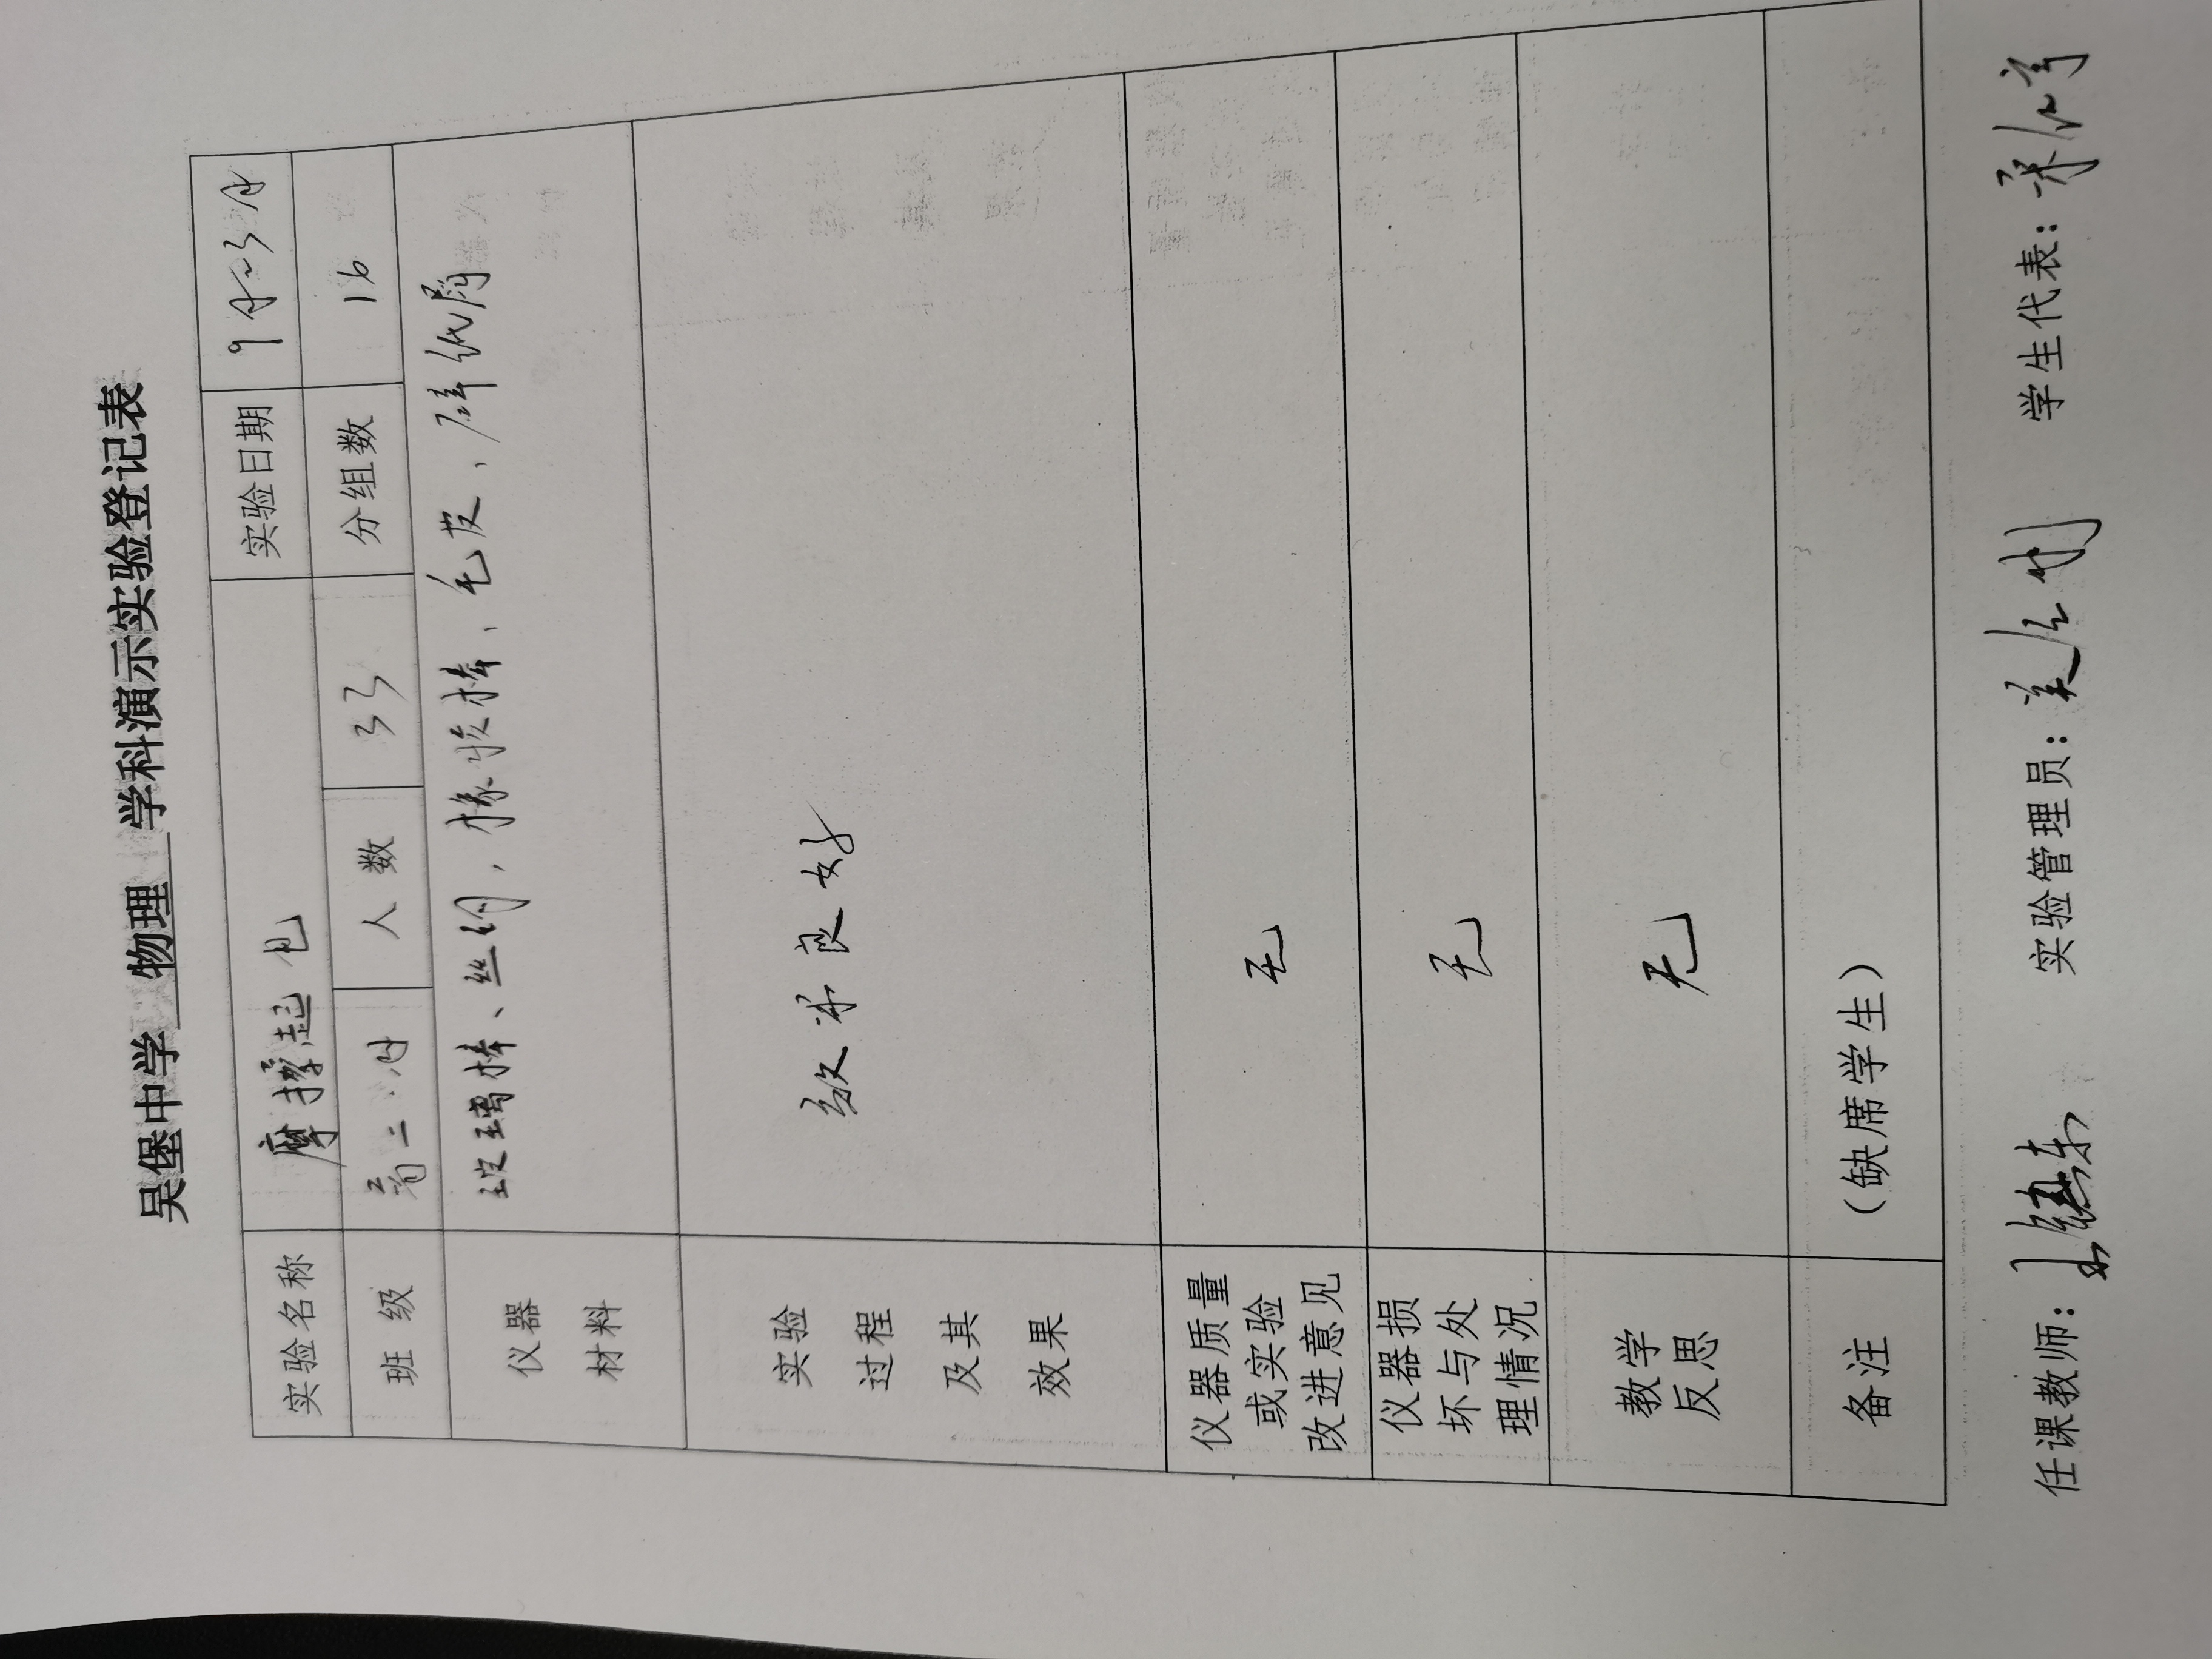 吴堡中学 物理 学科演示实验登记表
实验名称 摩擦起电 实验日期 9月3日
班级 高二·  人数 33 分组数 16
仪器 玻璃棒、丝绸，橡胶棒、毛皮、碎纸屑
材料
实验 效果良好
过程
及其
效果
仪器质量
或实验 无
改进意见
仪器损
坏与处 无
理情况
教学 无
反思
备注 （缺席学生）
任课教师： 实验管理员： 学生代表：